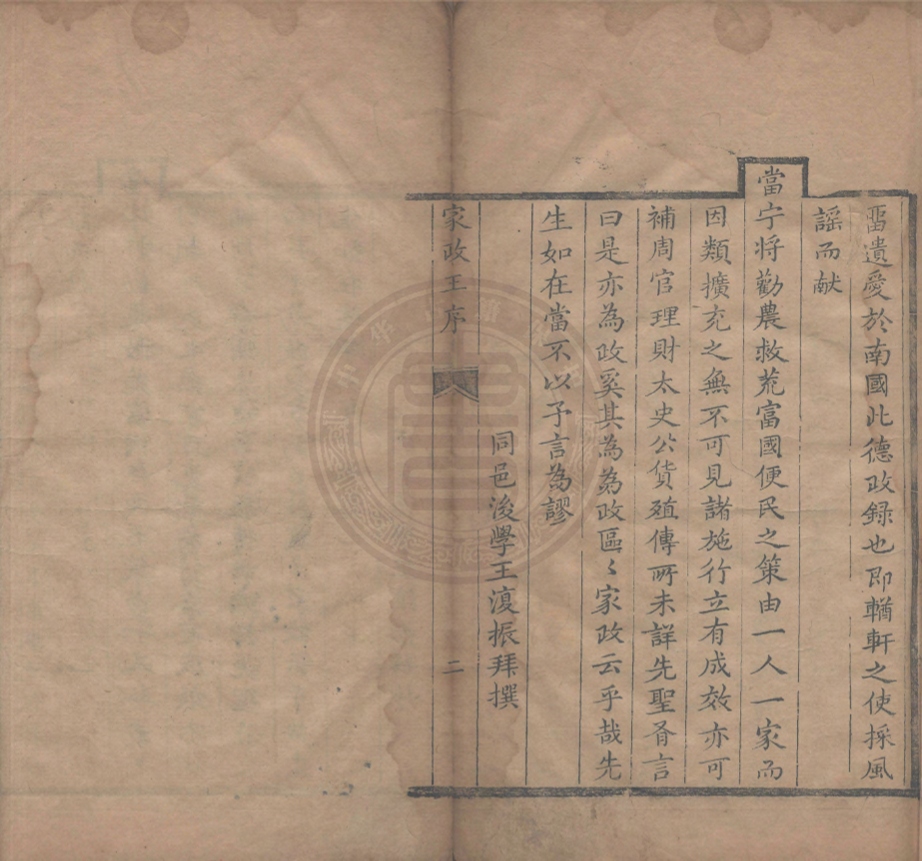 畱遺愛於南國此德政録也即輶軒之使採風
謡而献
當宁將勸農救荒富國便民之策由一人一家而
因類擴充之無不可見諸施行立有成效亦可
補周官理財太史公貨殖傳所未詳先聖有言
曰是亦為政奚其為為政區〻家政云乎哉先
生如在當不以予言為謬
同邑後學王復振拜撰
家政王序
二